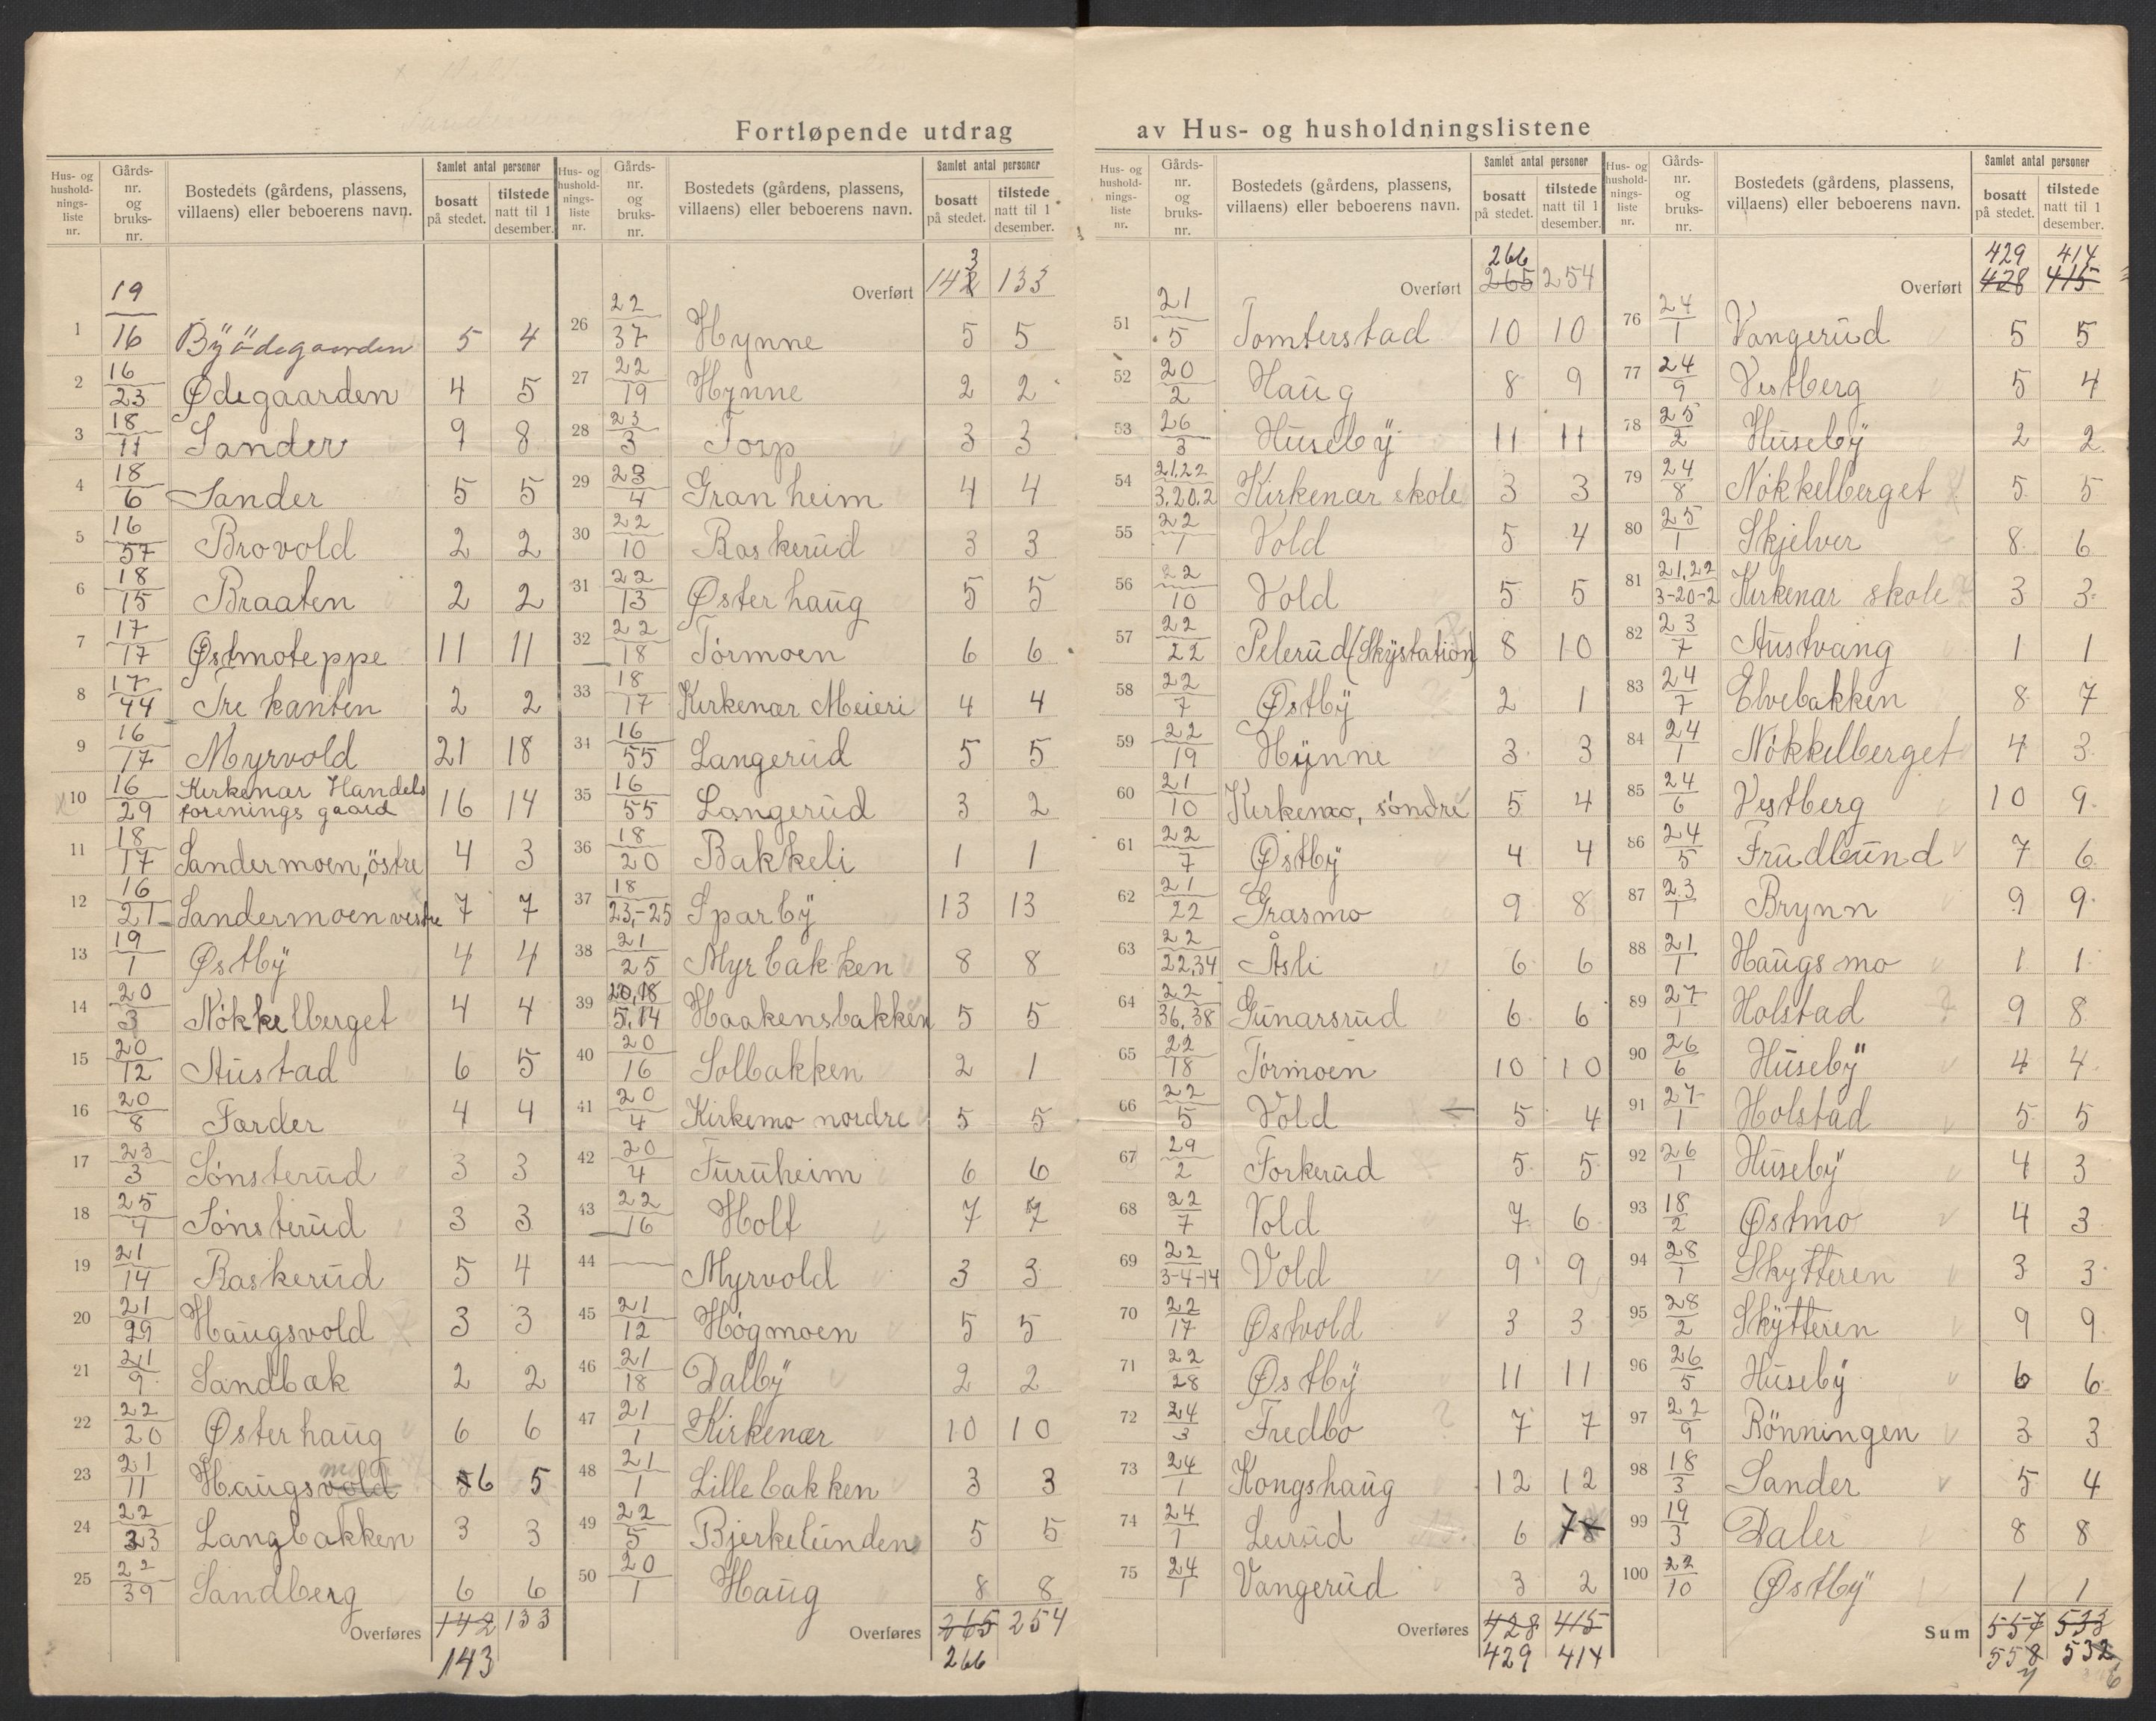 Fortløpende utdrag av Hus- og husholdningslistene
Hus- og husholdningsliste nr. | Gårds-nr. og bruks-nr. | Bostedets (gårdens, plassens, villaens) eller beboerens navn. | Samlet antal personer bosatt på stedet. | tilstede natt til 1 desember.
1 19/16 Byödegaarden 5 4
2 16/23 Ødegaarden 4 5
3 18/11 Sander 9 8
4 18/6 Sander 5 5
5 16/57 Brovold 2 2
6 18/15 Braaten 2 2
7 17/17 Østmoteppe 11 11
8 17/44 Trekanten 2 2
9 16/17 Myrvold 21 18
10 16/29 Kirkenær Handels
forenings gaard 16 14
11 18/17 Sandermoen, östre 4 3
12 16/21 Sandermoen vestre 7 7
13 19/1 Østby 4 4
14 20/3 Nökkelberget 4 4
15 20/12 Austad 6 5
16 20/8 Farder 4 4
17 23/3 Sönsterud 3 3
18 25/4 Sönsterud 3 3
19 21/14 Raskerud 5 4
20 21/29 Haugsvold 3 3
21 21/9 Sandbak 2 2
22 22/20 Østerhaug 6 6
23 21/11 Haugsvold 5 6 5
24 22/23 Langbakken 3 3
25 22/39 Sandberg 6 6
Overføres 142 133
143
Hus- og husholdningsliste nr. | Gårds-nr. og bruks-nr. | Bostedets (gårdens, plassens, villaens) eller beboerens navn. | Samlet antal personer bosatt på stedet. | tilstede natt til 1 desember.
3
Overført 142 133
26 22/37 Hynne 5 5
27 22/19 Hynne 2 2
28 23/3 Torp 3 3
29 23/4 Granheim 4 4
30 22/10 Raskerud 3 3
31 22/13 Østerhaug 5 5
32 22/18 Törmoen 6 6
33 18/17 Kirkenær Meieri 4 4
34 16/55 Langerud 5 5
35 16/55 Langerud 3 2
36 18/20 Bakkeli 1 1
37 18/23,-25 Sparby 13 13
38 21/25 Myrbakken 8 8
39 20,18/5,14 Haakensbakken 5 5
40 20/16 Solbakken 2 1
41 20/4 Kirkemo nordre 5 5
42 20/4 Furuheim 6 6
43 22/16 Holt 7 7
44 — Myrvold 3 3
45 21/12 Högmoen 5 5
46 21/18 Dalby 2 2
47 21/1 Kirkenær 10 10
48 21/1 Lillebakken 3 3
49 22/5 Bjerkelunden 5 5
50 20/1 Haug 8 8
Overføres 265 254
266
Hus- og husholdningsliste nr. | Gårds-nr. og bruks-nr. | Bostedets (gårdens, plassens, villaens) eller beboerens navn. | Samlet antal personer bosatt på stedet. | tilstede natt til 1 desember.
266
Overført 265 254
51 21/5 Tomterstad 10 10
52 20/2 Haug 8 9
53 26/3 Huseby 11 11
54 21,22/3,20,2 Kirkenær skole 3 3
55 22/1 Vold 5 4
56 22/10 Vold 5 5
57 22/22 Pelerud (Skystation) 8 10
58 22/7 Østby 2 1
59 22/19 Hynne 3 3
60 21/10 Kirkemo, söndre 5 4
61 22/7 Østby 4 4
62 21/22 Grasmo 9 8
63 22/22,34 Åsli 6 6
64 22/36,38 Gunarsrud 6 6
65 22/18 Törmoen 10 10
66 22/5 Vold 5 4
67 29/2 Forkerud 5 5
68 22/7 Vold 7 6
69 22/3-4-14 Vold 9 9
70 22/17 Østvold 3 3
71 22/28 Østby 11 11
72 24/3 Fredbo ? 7 7
73 24/1 Kongshaug 12 12
74 24/1 Leirud 6 7 8
75 24/1 Vangerud 3 2
Overføres 428 415
429 414
Hus- og husholdningsliste nr. | Gårds-nr. og bruks-nr. | Bostedets (gårdens, plassens, villaens) eller beboerens navn. | Samlet antal personer bosatt på stedet. | tilstede natt til 1 desember.
429 414
Overført 428 415
76 24/1 Vangerud 5 5
77 24/9 Vestberg 5 4
78 25/2 Huseby 2 2
79 24/8 Nökkelberget 5 5
80 25/1 Skjelver 8 6
81 21,22/3-20-2 Kirkenær skole 3 3
82 23/7 Austvang 1 1
83 24/7 Elvebakken 8 7
84 24/1 Nökkelberget 4 3
85 24/6 Vestberg 10 9
86 24/5 Frudlund 7 6
87 23/1 Brynn 9 9
88 21/1 Haugsmo 1 1
89 27/1 Holstad ? 9 8
90 26/6 Huseby 4 4
91 27/1 Holstad 5 5
92 26/1 Huseby 4 3
93 18/2 Østmo 4 3
94 28/1 Skytteren 3 3
95 28/2 Skytteren 9 9
96 26/5 Huseby 6 6
97 22/9 Rönningen 3 3
98 18/3 Sander 5 4
99 19/3 Daler 8 8
100 22/10 Østby 1 1
Sum 557 533
558 532
7 6